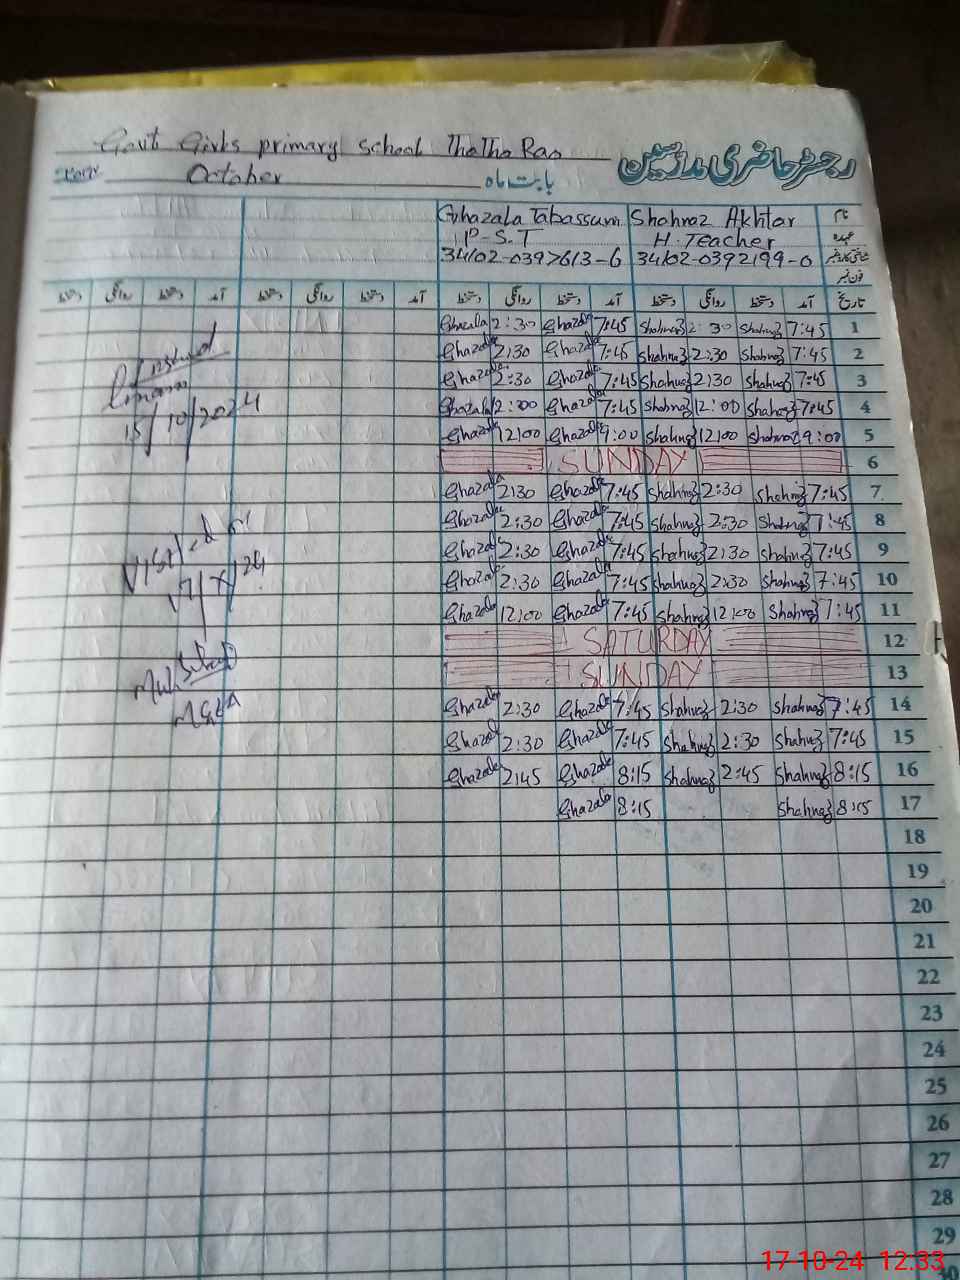 Govt Girls primary school ThaTha Rao رجسٹر حاضری مدرسین
October بابت ماہ
Ghazala Tabassum Shahnaz Akhtar نام
P-S.T H. Teacher عہدہ
34102-0397613-6 34102-0392199-0 شناختی کارڈ نمبر
فون نمبر
دستخط روانگی دستخط آمد دستخط روانگی دستخط آمد دستخط روانگی دستخط آمد دستخط روانگی دستخط آمد تاریخ
Ghazala 2:30 Ghazala 7:45 Shahnaz 2:30 Shahnaz 7:45 1
Ghazala 2:30 Ghazala 7:45 Shahnaz 2:30 Shahnaz 7:45 2
Ghazala 2:30 Ghazala 7:45 Shahnaz 2:30 Shahnaz 7:45 3
Ghazala 12:00 Ghazala 7:45 Shahnaz 12:00 Shahnaz 7:45 4
Ghazala 12:00 Ghazala 9:00 Shahnaz 12:00 Shahnaz 9:00 5
SUNDAY 6
Ghazala 2:30 Ghazala 7:45 Shahnaz 2:30 Shahnaz 7:45 7
Ghazala 2:30 Ghazala 7:45 Shahnaz 2:30 Shahnaz 7:45 8
Ghazala 2:30 Ghazala 7:45 Shahnaz 2:30 Shahnaz 7:45 9
Ghazala 2:30 Ghazala 7:45 Shahnaz 2:30 Shahnaz 7:45 10
Ghazala 12:00 Ghazala 7:45 Shahnaz 12:00 Shahnaz 7:45 11
SATURDAY 12
SUNDAY 13
Ghazala 2:30 Ghazala 7:45 Shahnaz 2:30 Shahnaz 7:45 14
Ghazala 2:30 Ghazala 7:45 Shahnaz 2:30 Shahnaz 7:45 15
Ghazala 2:45 Ghazala 8:15 Shahnaz 2:45 Shahnaz 8:15 16
Ghazala 8:15 Shahnaz 8:15 17
18
19
20
21
22
23
24
25
26
27
28
29
30
15/10/2024
Visited on
MEA
17-10-24 12:33